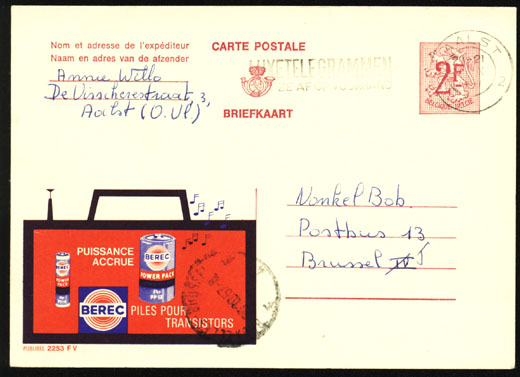 Nom et adresse de l'expéditeur
Naam en adres van de afzender
Annie Willo
De Visscherestraat, 3,
Aalst (O.Vl)
CARTE POSTALE
LUXETELEGRAMMEN
BRIEFKAART
AALST
2
2F
BELGIQUE-BELGIE
Nonkel Bob
Postbus 13
Brussel 1
PUISSANCE
ACCRUE
BEREC
POWER PACK
BEREC
POWER PACK
PP 12
BEREC
PILES POUR
TRANSISTORS
PUBLIBEL 2253 F V